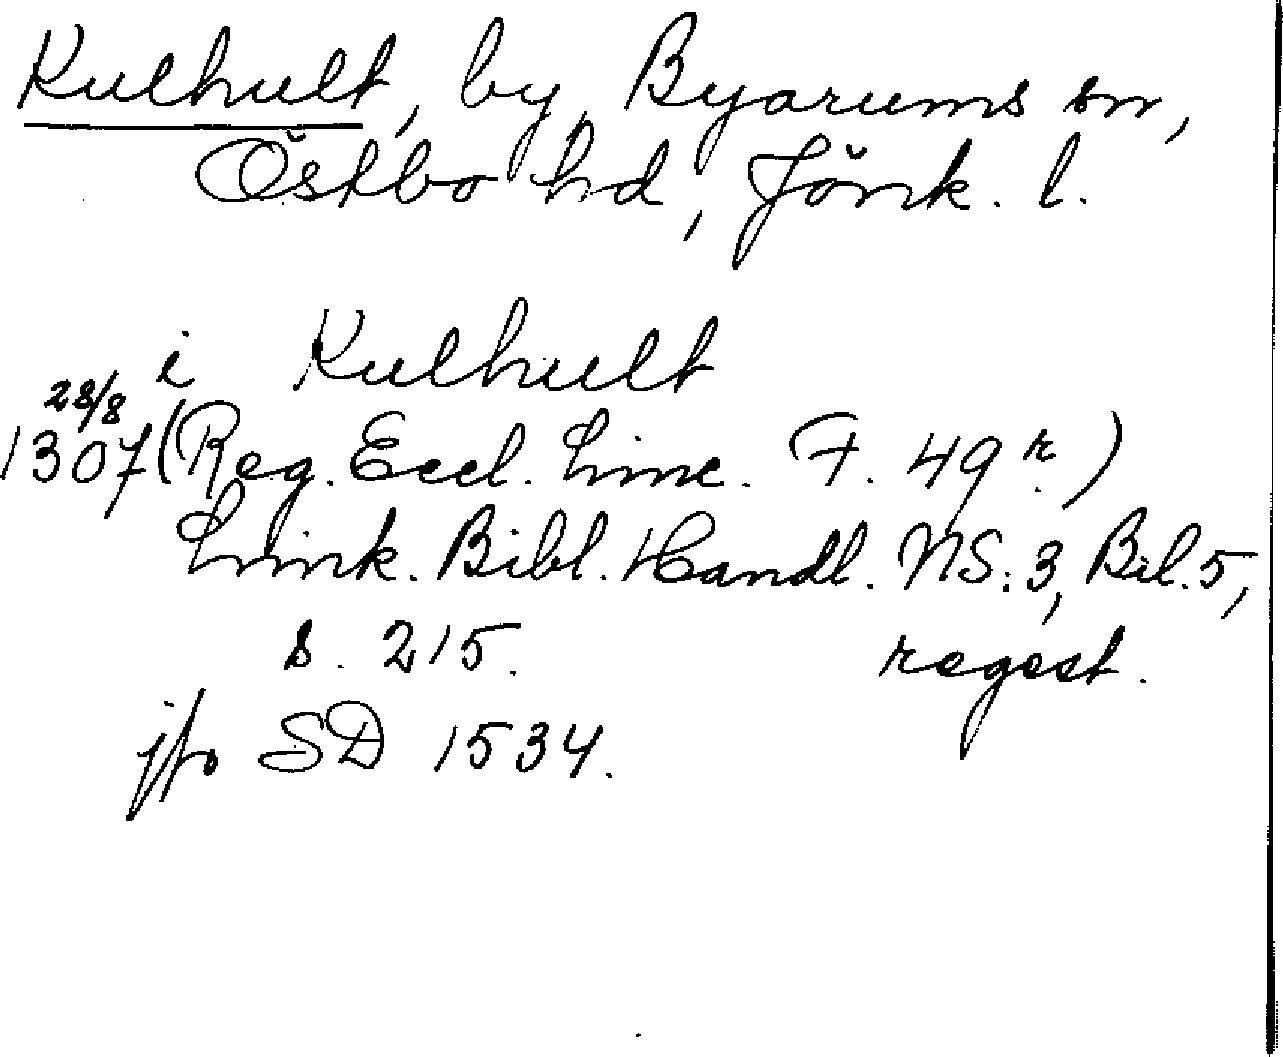 Kulhult, by, Byarums sn,
Östbo hd, Jönk. l.
i Kulhult
28/8
1307 (Reg. Eccl. Linc. F. 49 r.)
Link. Bibl. Handl. NS. 3, Bil. 5,
s. 215. regest.
jfr SD 1534.